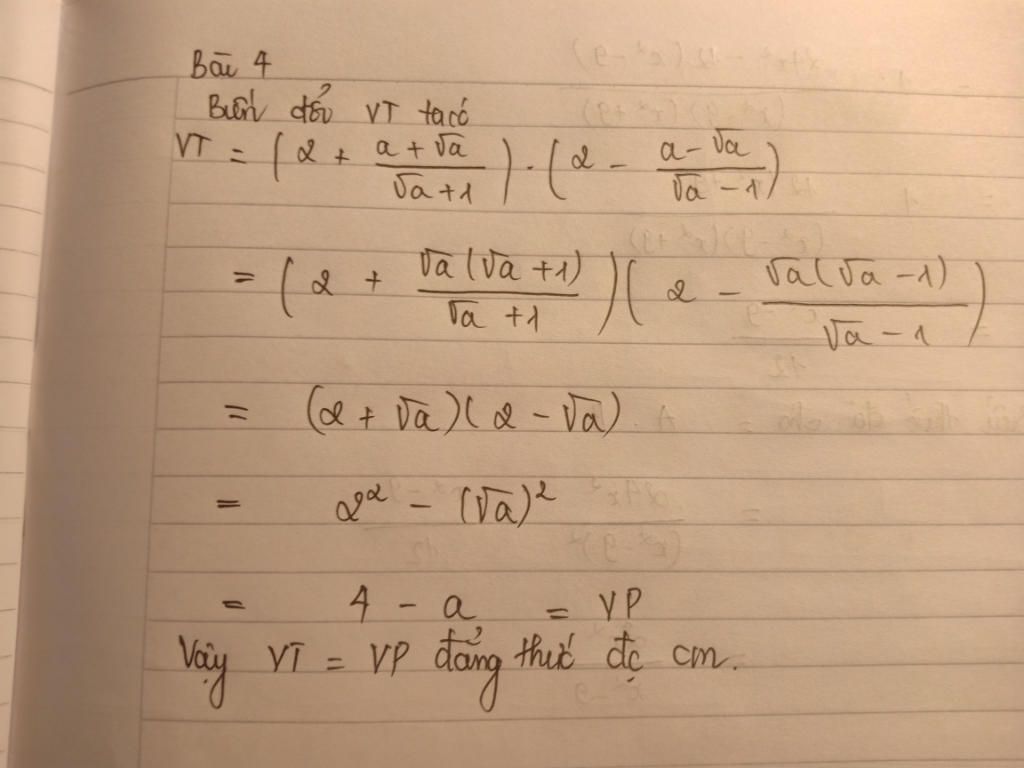 Bài 4
Biến đổi VT ta có
VT = (2 + (a + √a)/(√a + 1)) · (2 - (a - √a)/(√a - 1))
= (2 + √a(√a + 1)/(√a + 1))(2 - √a(√a - 1)/(√a - 1))
= (2 + √a)(2 - √a)
= 2² - (√a)²
= 4 - a = VP
Vậy VT = VP đẳng thức đc cm.